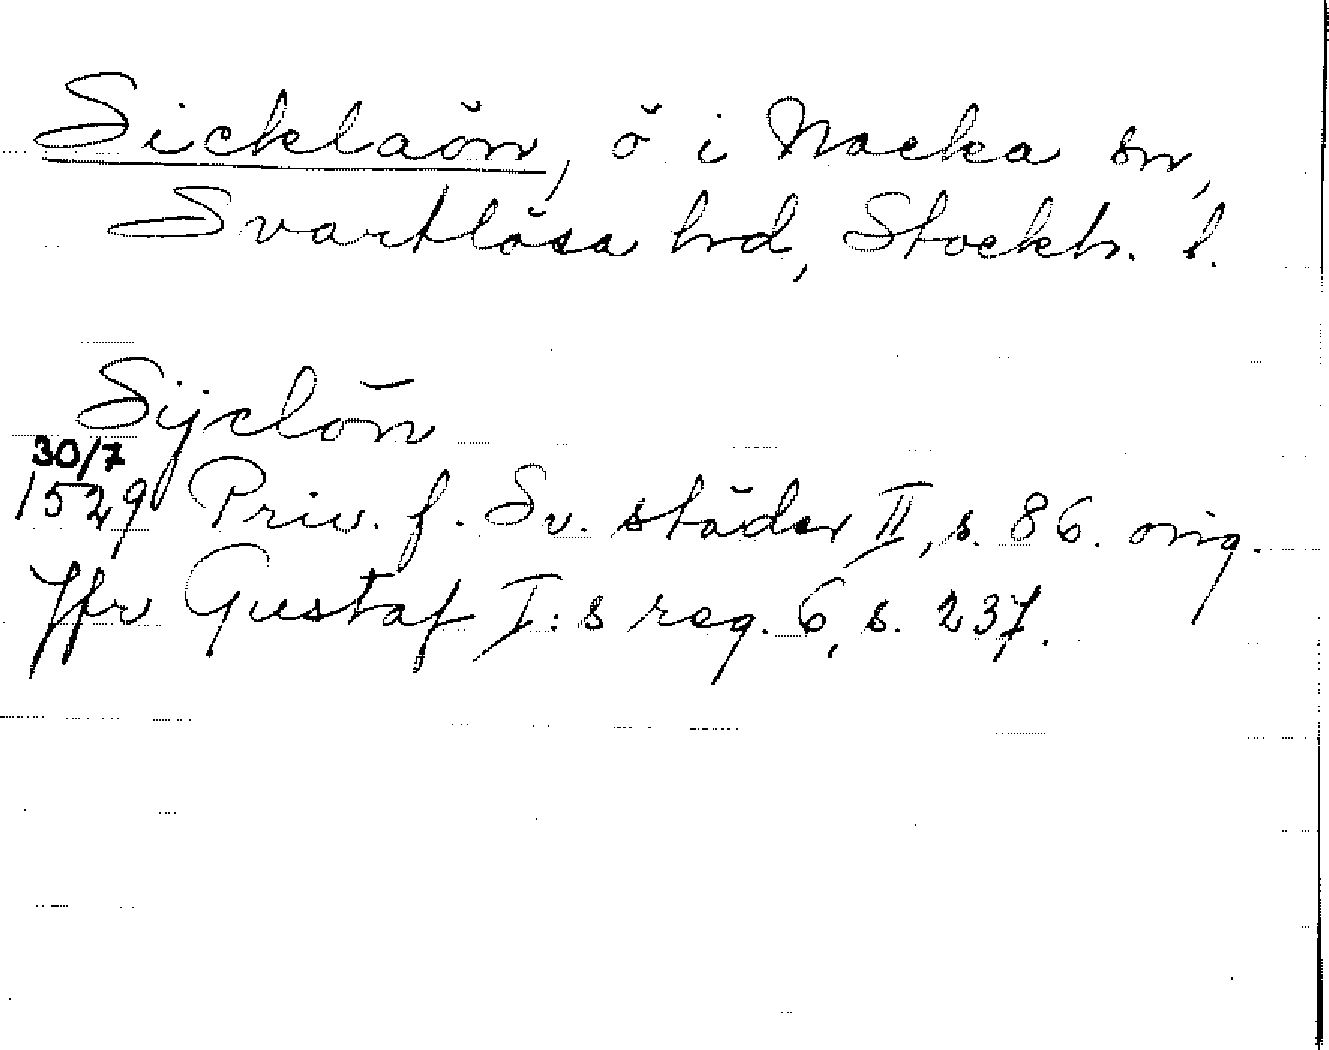 Sicklaön, ö i Nacka sn,
Svartlösa hrd, Stockh. l.
Sijclön
30/7
1529 Priv. f. Sv. städer II, s. 86. orig.
Jfr Gustaf I:s reg. 6, s. 237.